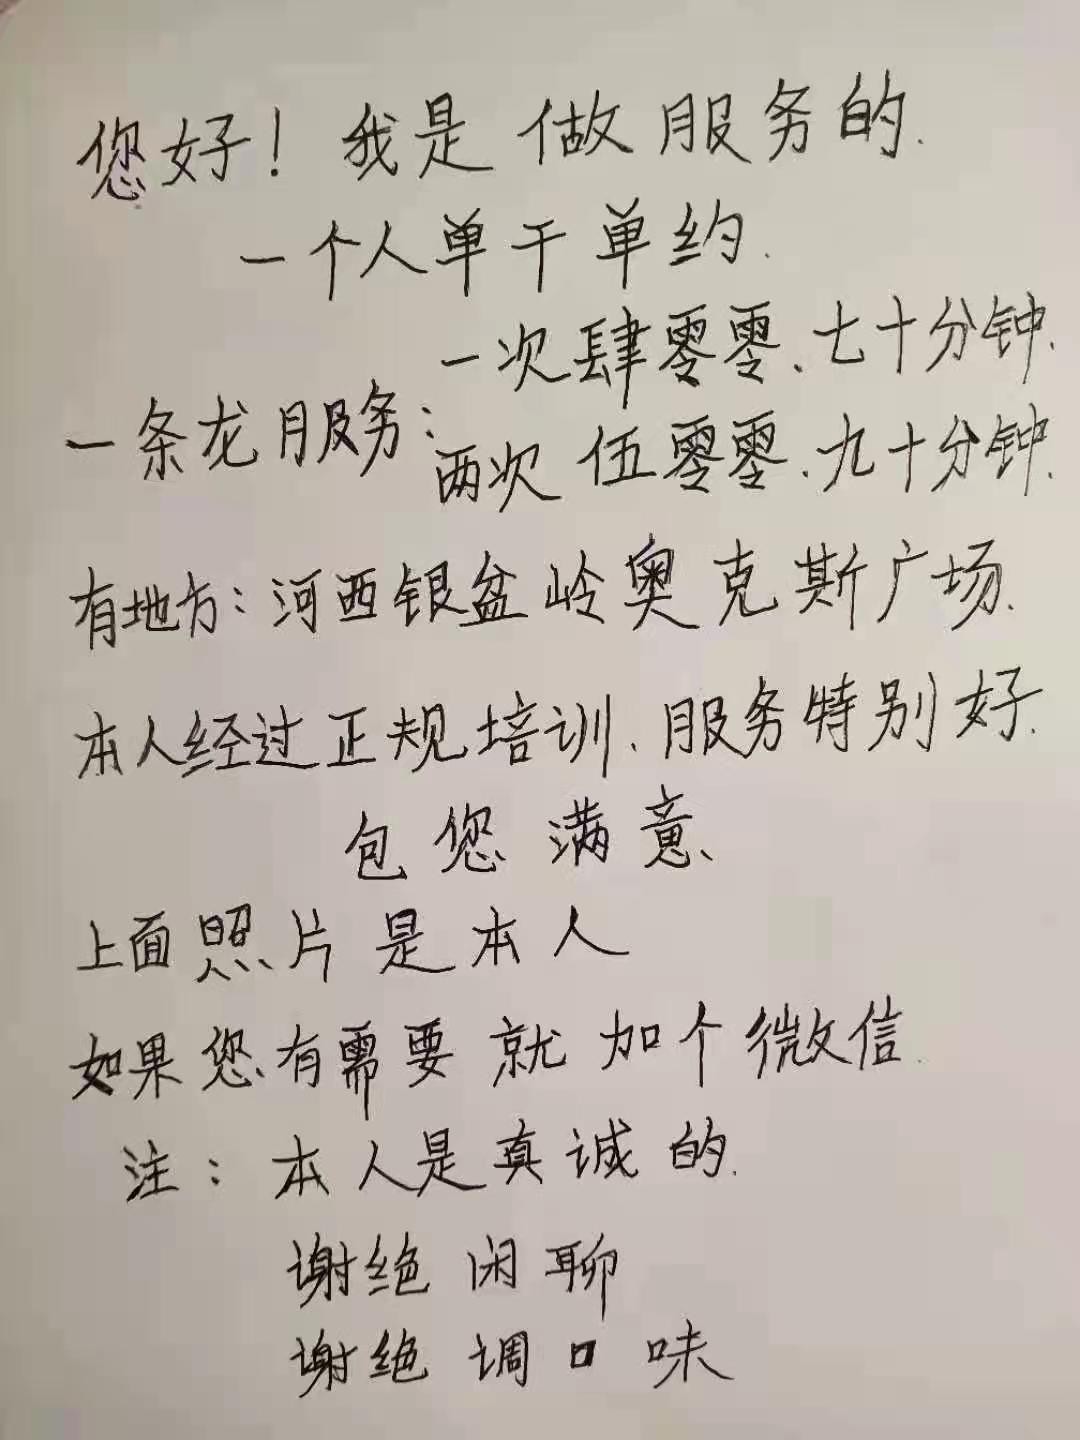 您好！我是做服务的.
一个人单干单约.
一次肆零零.七十分钟.
一条龙服务：
两次伍零零.九十分钟.
有地方：河西银盆岭奥克斯广场.
本人经过正规培训.服务特别好.
包您满意.
上面照片是本人
如果您有需要就加个微信.
注：本人是真诚的.
谢绝闲聊
谢绝调口味